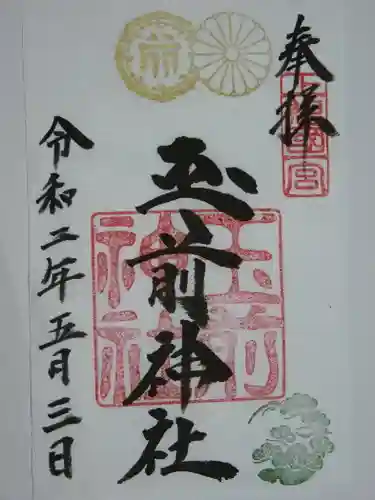 奉拝
上総國一宮
玉前神社
玉前神社
令和二年五月三日